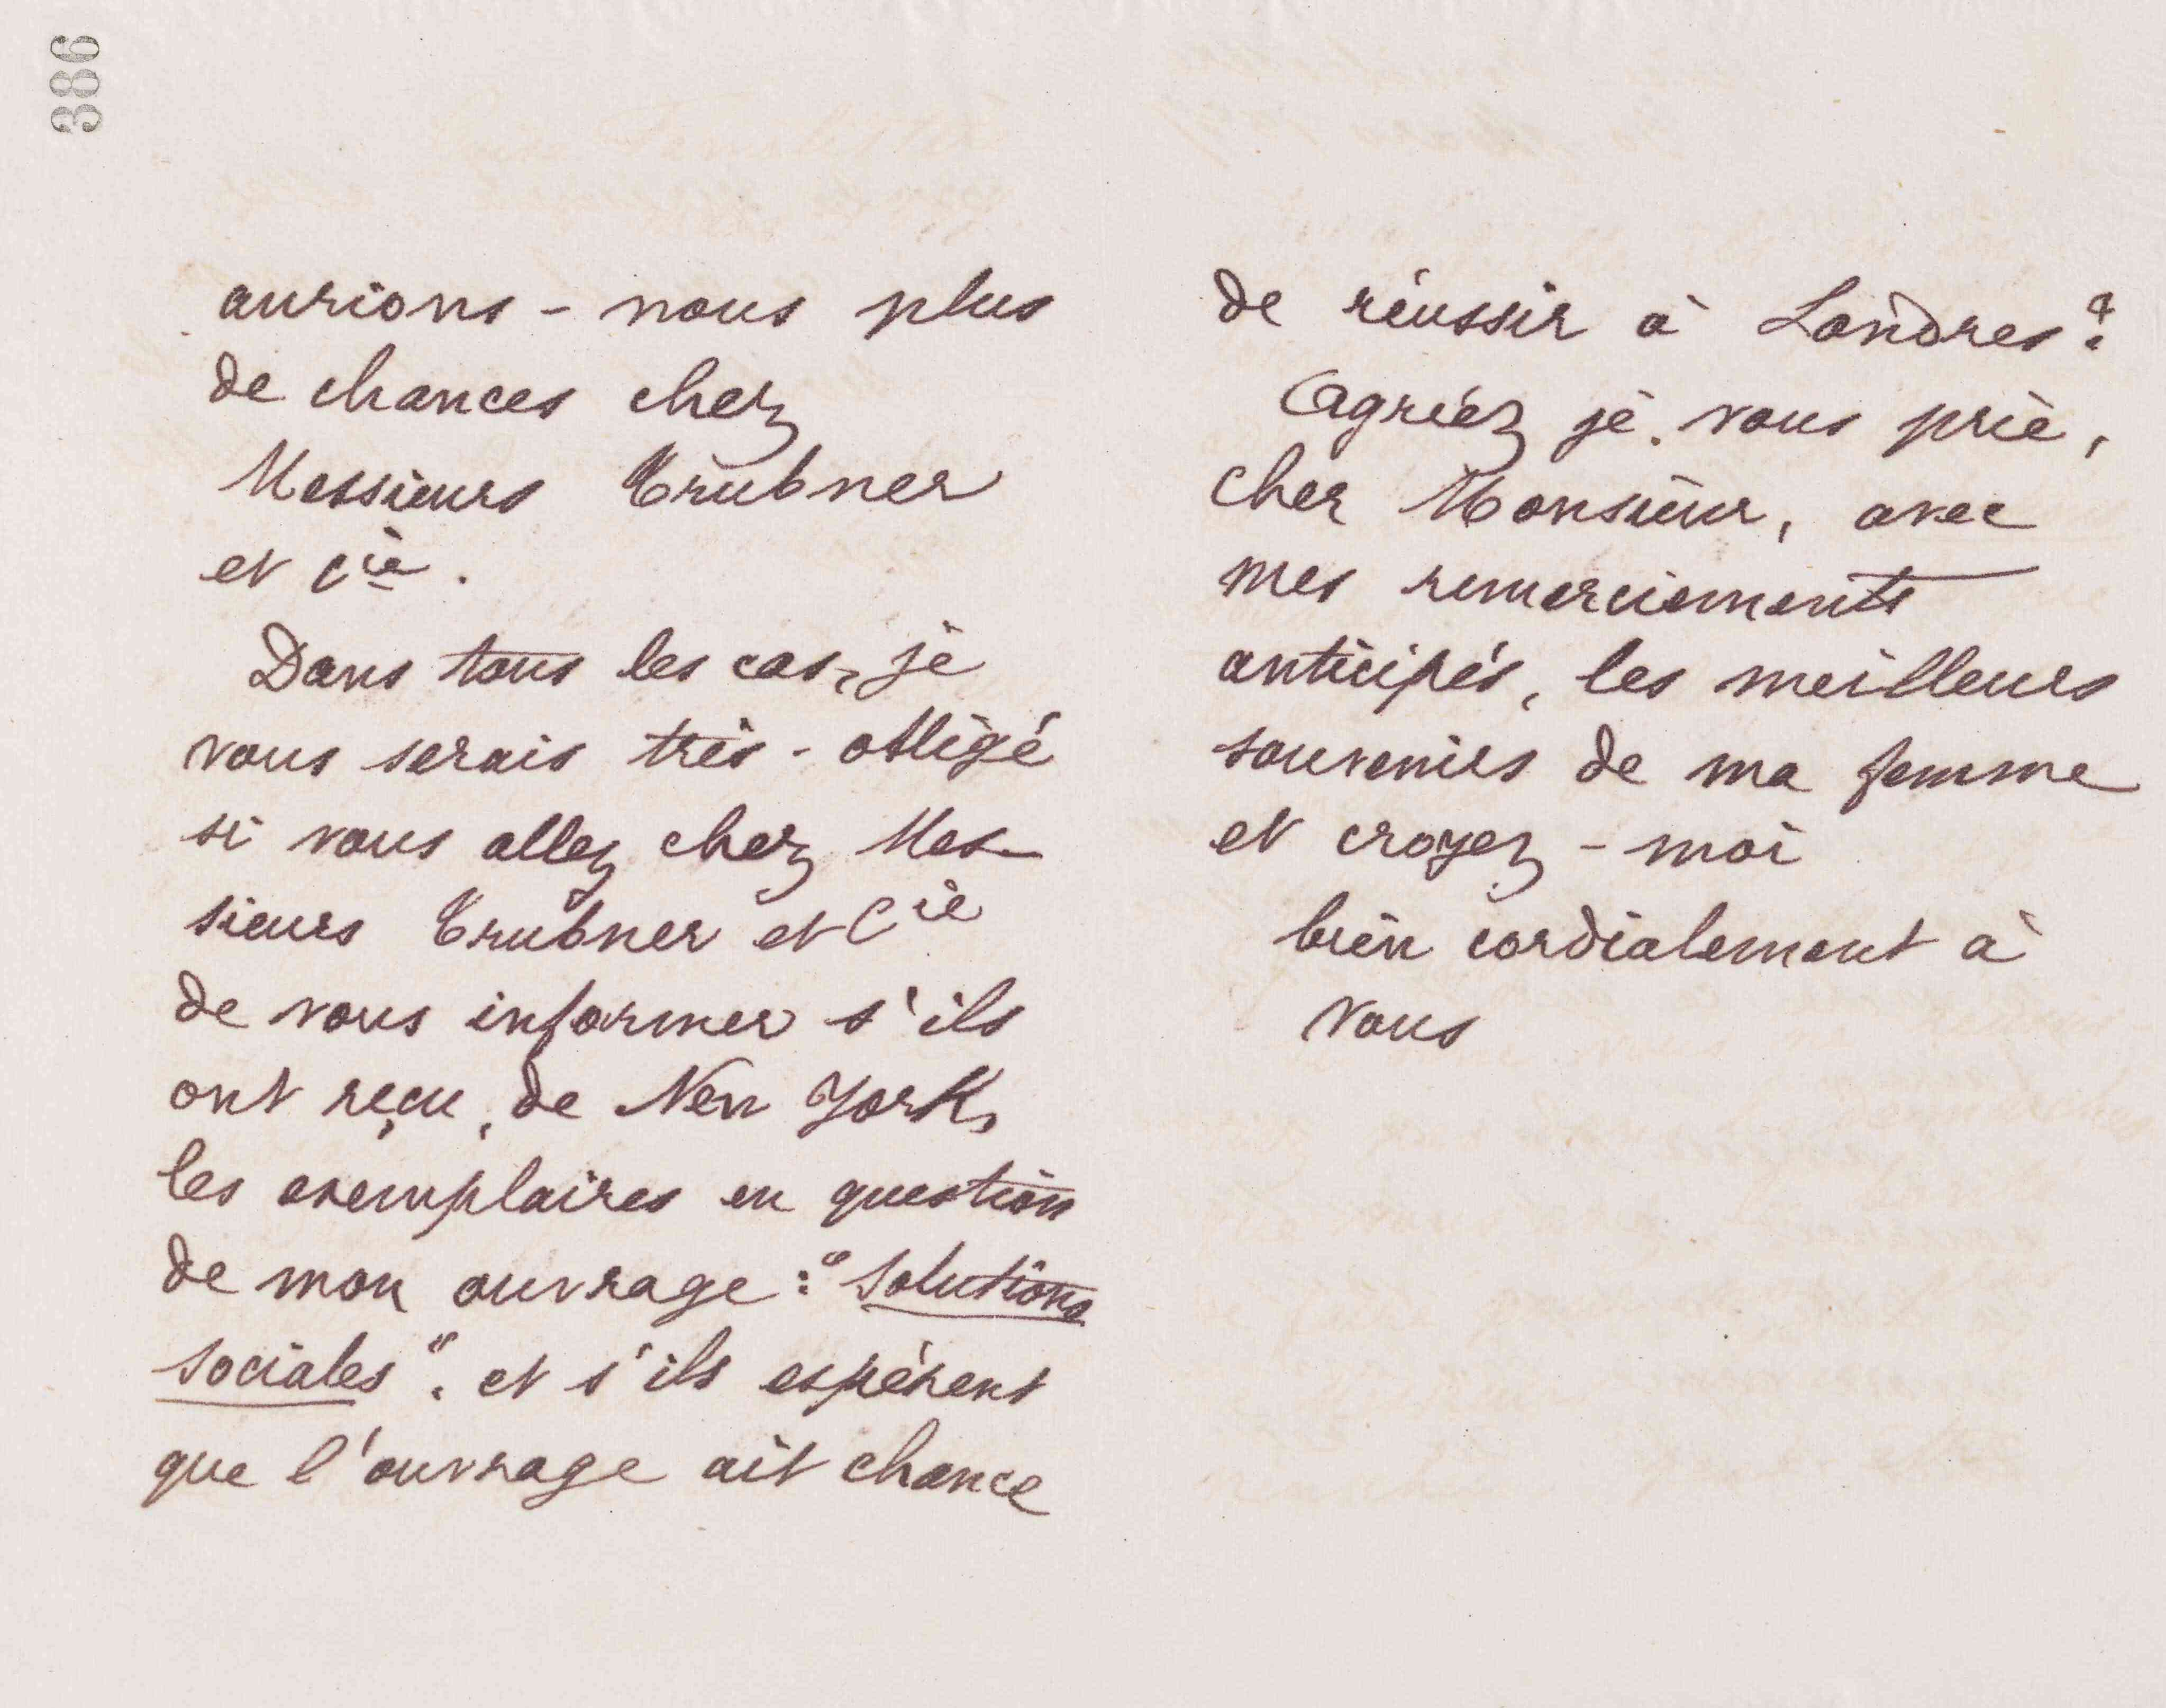 386
aurions-nous plus
de chances chez
Messieurs Trübner
et Cie.
Dans tous les cas, je
vous serais très-obligé
si vous allez chez Mes-
sieurs Trubner et Cie
de vous informer s'ils
ont reçu, de New York,
les exemplaires en question
de mon ouvrage : "Solutions
sociales". et s'ils espèrent
que l'ouvrage ait chance
de réussir à Londres ?
Agréez je vous prie,
cher Monsieur, avec
mes remerciements
anticipés, les meilleurs
souvenirs de ma femme
et croyez-moi
bien cordialement à
vous